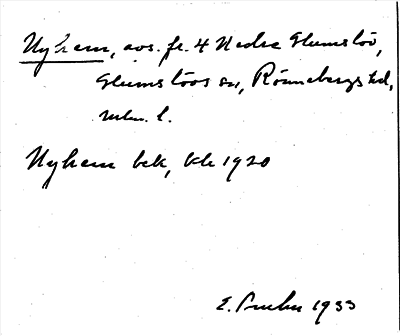 Nyhem, avs. fr. 4 Nedra Glumslöv,
Glumslövs sn, Rönnebergs hd,
Mlm. l.
Nyhem bek, kle 1920
E. 1933